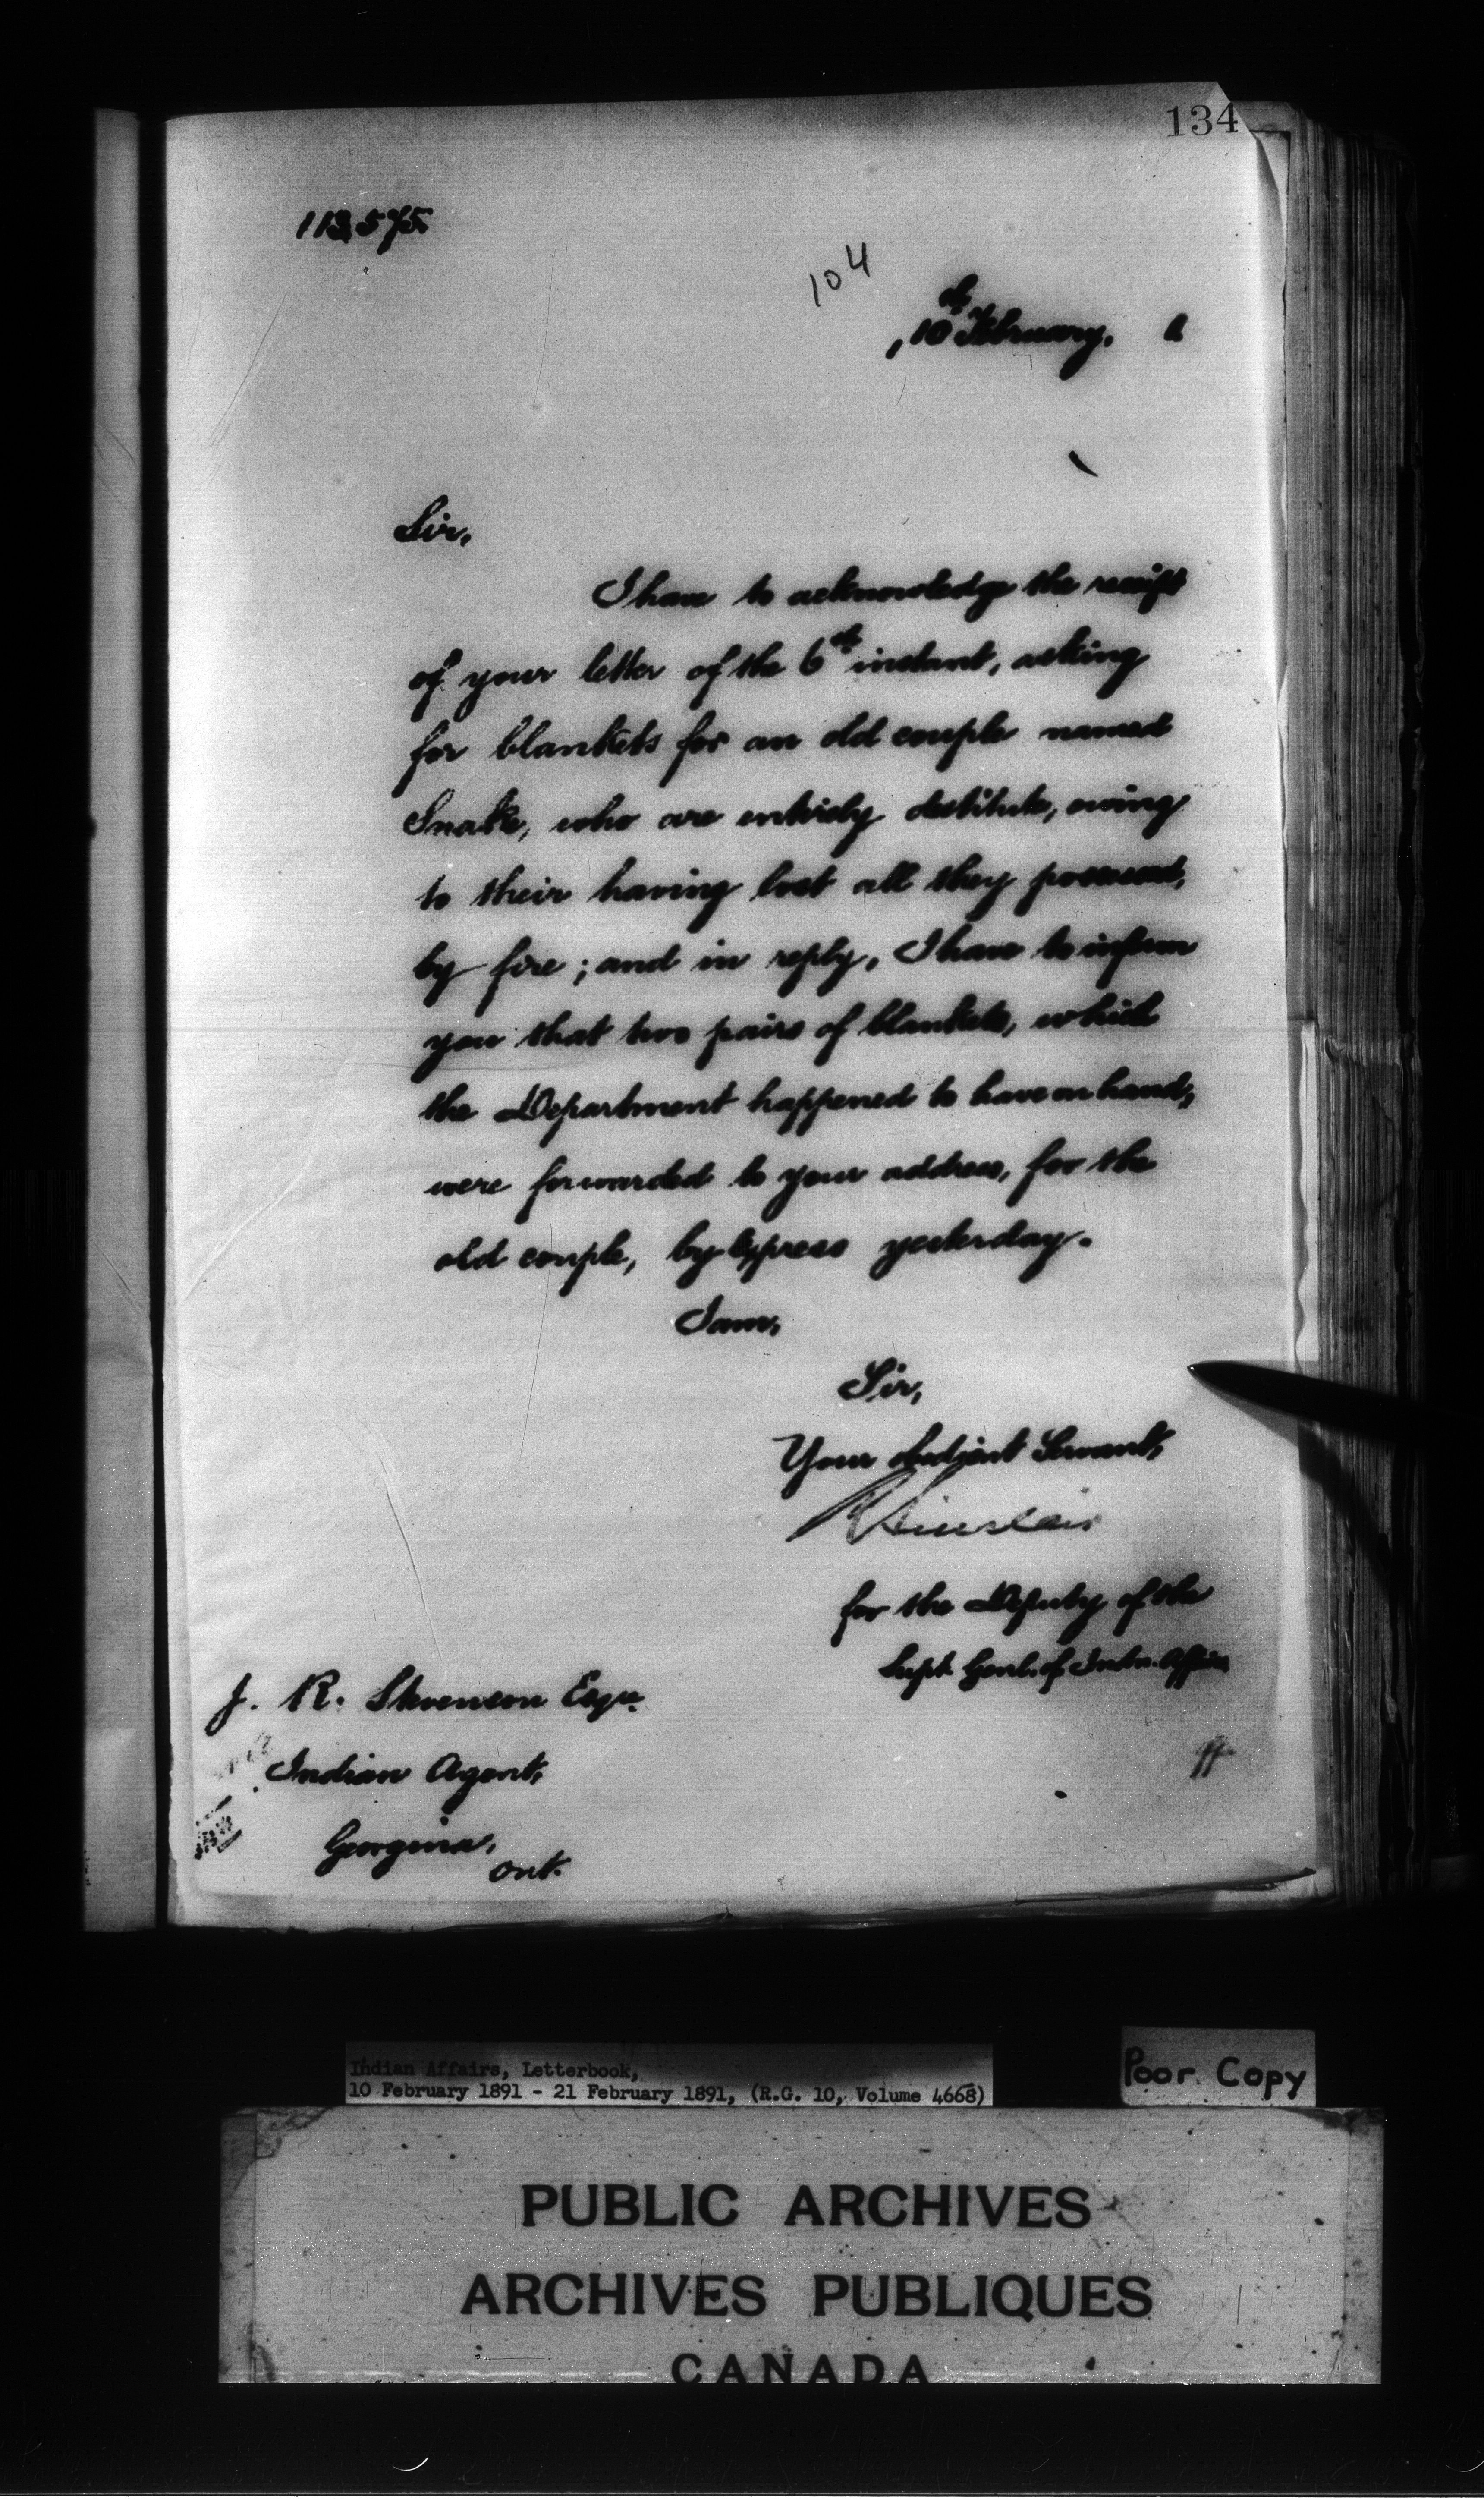 134
113,575.
104
, 10th February, 1
Sir,
I have to acknowledge the receipt
of your letter of the 6th instant, asking
for blankets for an old couple named
Snake, who are entirely destitute, owing
to their having lost all they possessed,
by fire; and in reply, I have to inform
you that two pairs of blankets, which
the Department happened to have on hand,
were forwarded to your address, for the
old couple, by Express yesterday.
I am,
Sir,
Your obedient Servant,
R Sinclair
for the Deputy of the
Supt. Genl. of Indn. Affairs
J. R. Stevenson Esqr.
Indian Agent,
Georgina,
Ont.
Indian Affairs, Letterbook,
10 February 1891 - 21 February 1891, (R.G. 10, Volume 4668)
Poor Copy
PUBLIC ARCHIVES
ARCHIVES PUBLIQUES
CANADA